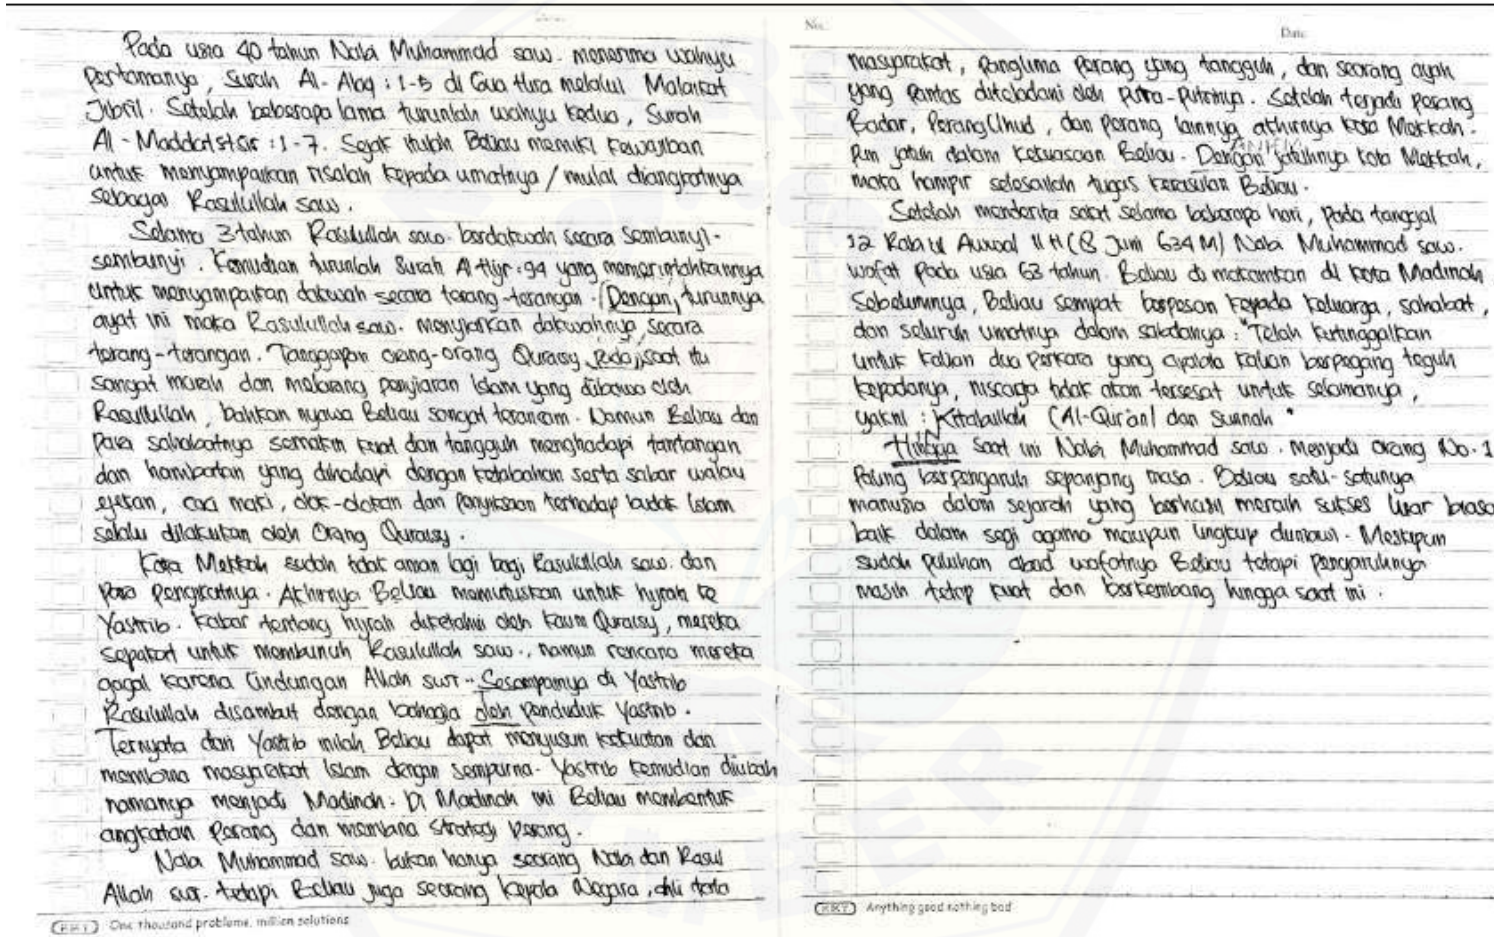 Pada usia 40 tahun Nabi Muhammad saw. menerima wahyu
pertamanya, Surah Al-Alaq : 1-5 di Gua Hira melalui Malaikat
Jibril. Setelah beberapa lama turunlah wahyu kedua, Surah
Al-Maddatstsir : 1-7. Sejak itulah Beliau memiliki kewajiban
untuk menyampaikan risalah kepada umatnya / mulai diangkatnya
sebagai Rasulullah saw.
Selama 3 tahun Rasulullah saw. berdakwah secara sembunyi-
sembunyi. Kemudian turunlah Surah Al Hijr : 94 yang memerintahkannya
untuk menyampaikan dakwah secara terang-terangan. Dengan turunnya
ayat ini maka Rasulullah saw. menyiarkan dakwahnya secara
terang-terangan. Tanggapan orang-orang Quraisy pada saat itu
sangat marah dan melarang penyiaran Islam yang dibawa oleh
Rasulullah, bahkan nyawa Beliau sangat terancam. Namun Beliau dan
para sahabatnya semakin kuat dan tangguh menghadapi tantangan
dan hambatan yang dihadapi dengan ketabahan serta sabar walau
ejekan, caci maki, olok-olokan dan penyiksaan terhadap budak Islam
selalu dilakukan oleh Orang Quraisy.
Kota Mekkah sudah tidak aman lagi bagi Rasulullah saw. dan
para pengikutnya. Akhirnya Beliau memutuskan untuk hijrah ke
Yastrib. Kabar tentang hijrah diketahui oleh kaum Quraisy, mereka
sepakat untuk membunuh Rasulullah saw., namun rencana mereka
gagal karena lindungan Allah swt. Sesampainya di Yastrib
Rasulullah disambut dengan bahagia oleh penduduk Yastrib.
Ternyata dari Yastrib inilah Beliau dapat menyusun kekuatan dan
membina masyarakat Islam dengan sempurna. Yastrib kemudian diubah
namanya menjadi Madinah. Di Madinah ini Beliau membentuk
angkatan perang dan membina strategi perang.
Nabi Muhammad saw. bukan hanya seorang Nabi dan Rasul
Allah swt. tetapi Beliau juga seorang kepala Negara, ahli tata
KKY One thousand problems, million solutions
No.:
Date
masyarakat, panglima perang yang tangguh, dan seorang ayah
yang pantas diteladani oleh putra-putrinya. Setelah terjadi perang
Badar, Perang Uhud, dan perang lainnya akhirnya kota Mekkah
pun jatuh dalam kekuasaan Beliau. Dengan jatuhnya kota Mekkah,
maka hampir selesailah tugas kerasulan Beliau.
Setelah menderita sakit selama beberapa hari, pada tanggal
12 Rabiul Auwal 11 H (8 Juni 634 M) Nabi Muhammad saw.
wafat pada usia 63 tahun. Beliau di makamkan di kota Madinah
Sebelumnya, Beliau sempat berpesan kepada keluarga, sahabat,
dan seluruh umatnya dalam sabdanya : "Telah kutinggalkan
untuk kalian dua perkara yang apabila kalian berpegang teguh
kepadanya, niscaya tidak akan tersesat untuk selamanya,
yakni : Kitabullah (Al-Qur'an) dan Sunnah"
Hingga saat ini Nabi Muhammad saw. menjadi orang No. 1
Paling berpengaruh sepanjang masa. Beliau satu-satunya
manusia dalam sejarah yang berhasil meraih sukses luar biasa
baik dalam segi agama maupun lingkup duniawi. Meskipun
sudah puluhan abad wafatnya Beliau tetapi pengaruhnya
masih tetap kuat dan berkembang hingga saat ini.
KKY Anything good nothing bad